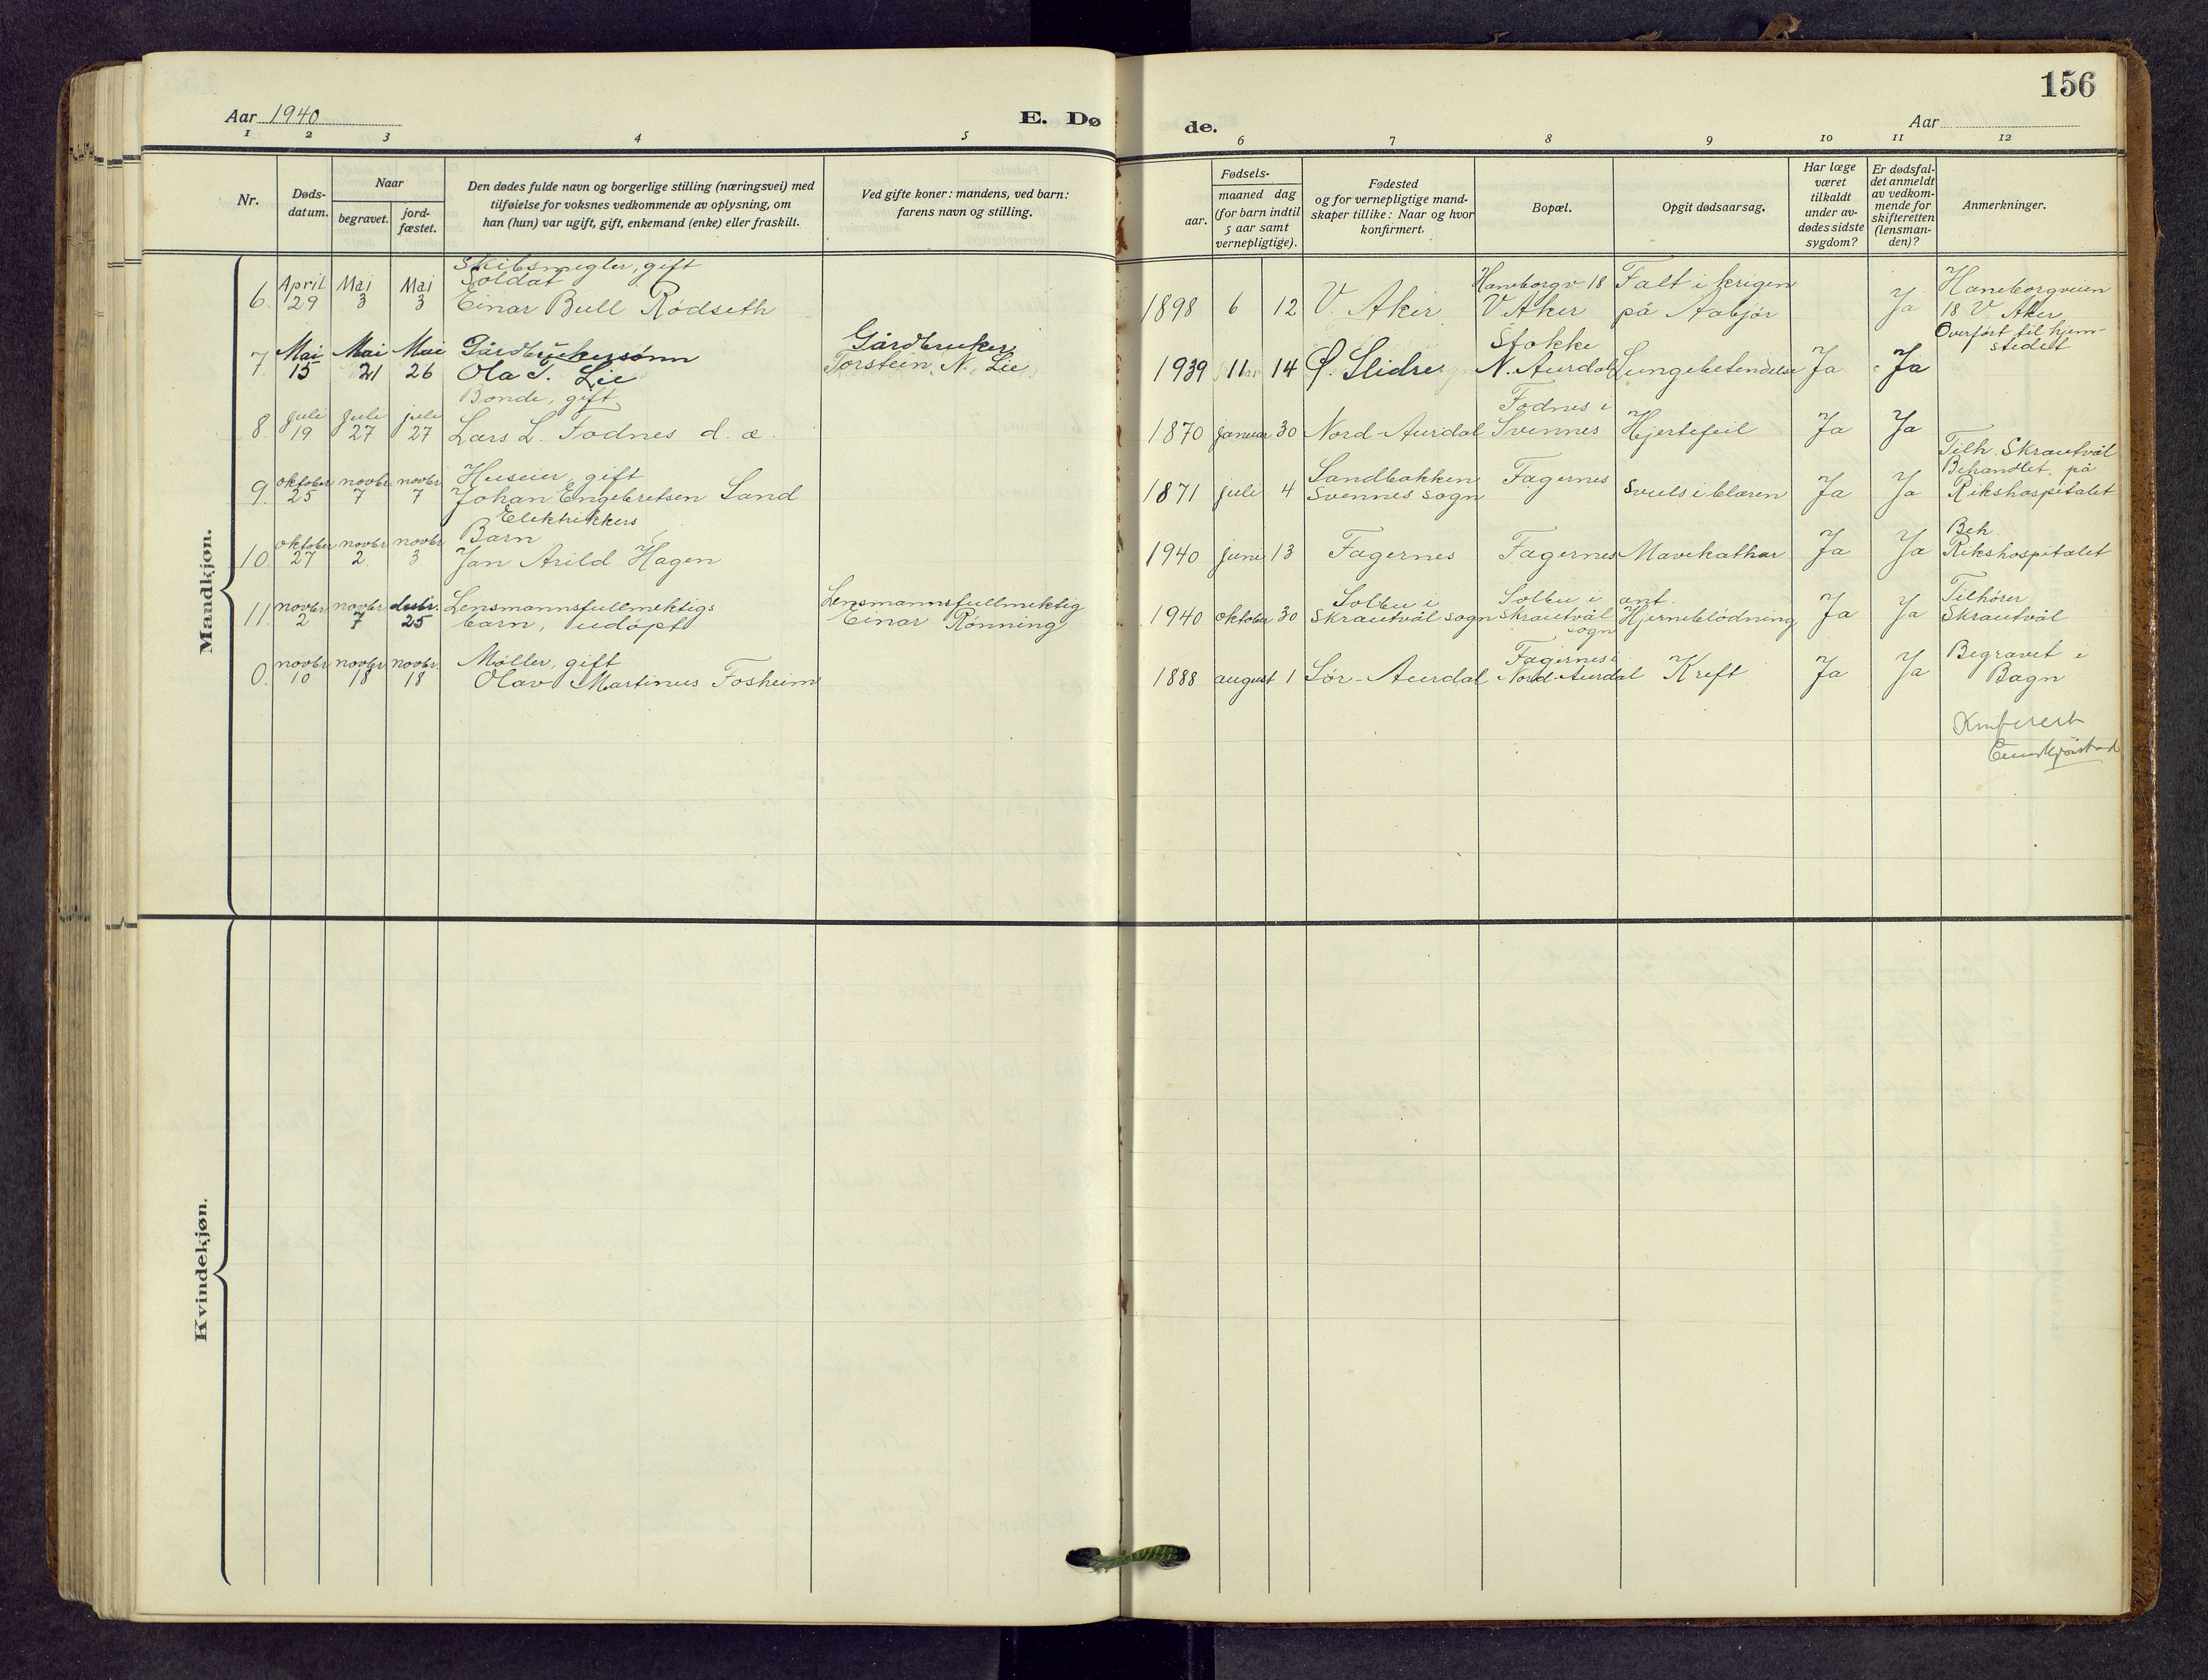 156
Aar 1940
E. Dø
de.
Aar
1 2 3 4 5 6 7 8 9 10 11 12
Nr.
Døds-
datum.
Naar
begravet.
jord-
fæstet.
Den dødes fulde navn og borgerlige stilling (næringsvei) med
tilføielse for voksnes vedkommende av oplysning, om
han (hun) var ugift, gift, enkemand (enke) eller fraskilt.
Ved gifte koner: mandens, ved barn:
farens navn og stilling.
Fødsels-
aar.
maaned dag
(for barn indtil
5 aar samt
vernepligtige).
Fødested
og for vernepligtige mand-
skaper tillike: Naar og hvor
konfirmert.
Bopæl.
Opgit dødsaarsag.
Har læge
været
tilkaldt
under av-
dødes sidste
sygdom?
Er dødsfal-
det anmeldt
av vedkom-
mende for
skifteretten
(lensman-
den)?
Anmerkninger.
Mandkjøn.
6. April 29 Mai 3 Mai 3
Skibsmegler, gift
Soldat
Einar Bull Rödseth
1898 6 12 V. Aker
Haneborgv. 18
V. Aker
Falt i krigen
på Aabjør
Ja
Haneborgveien
18 V. Aker
Overført til hjem-
stedet
7. Mai 15 Mai 21 Mai 26
Gårdbrukersønn
Ola T. Lie
Gårdbruker
Torstein N. Lie
1939 11 14 Ø. Slidre
Stokke
N. Aurdal
Lungebetendelse Ja Ja
8. juli 19 Juli 27 juli 27
Bonde, gift
Lars L. Fodnes d. æ.
1870 januar 30 Nord-Aurdal
Fodnes i
Svennes
Hjertefeil Ja Ja
9. oktober 25 novbr. 7 novbr 7
Huseier, gift
Johan Engebretsen Sand
1871 juli 4
Sandbakken
Svennes sogn
Fagernes
Svuls i blæren Ja Ja
Tilh. Skrautvål
Behandlet på
Rikshospitalet
10. oktober 27 novbr 2. novbr 3
Elektrikkers
Barn
Jan Arild Hagen
1940 juni 13 Fagernes
Fagernes
Mavekathar Ja Ja
Beh.
Rikshospitalet
11. novbr 2 novbr 7 desbr. 25
Lensmannsfullmektigs
barn, udöpt
Lensmannsfullmektig
Einar Rønning
1940 oktober 30
Solbu i
Skrautvål sogn
Solbu i
Skrautvål
sogn
ant.
Hjerneblödning Ja Ja
Tilhører
Skrautvål
0. novbr 10 novbr 18 novbr. 18
Møller, gift
Olav Martinus Fosheim
1888 august 1 Sør-Aurdal
Fagernes i
Nord-Aurdal
Kreft Ja Ja
Begravet i
Bagn
Konferert
Kvindekjøn.